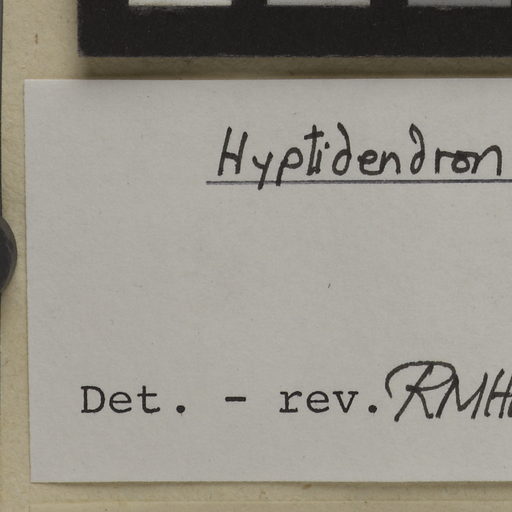 Hyptidendron
Det. - rev.